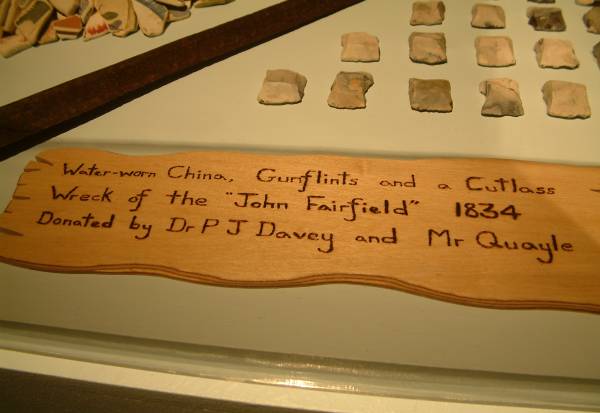 Water-worn China, Gunflints and a Cutlass
Wreck of the "John Fairfield" 1834
Donated by Dr P J Davey and Mr Quayle